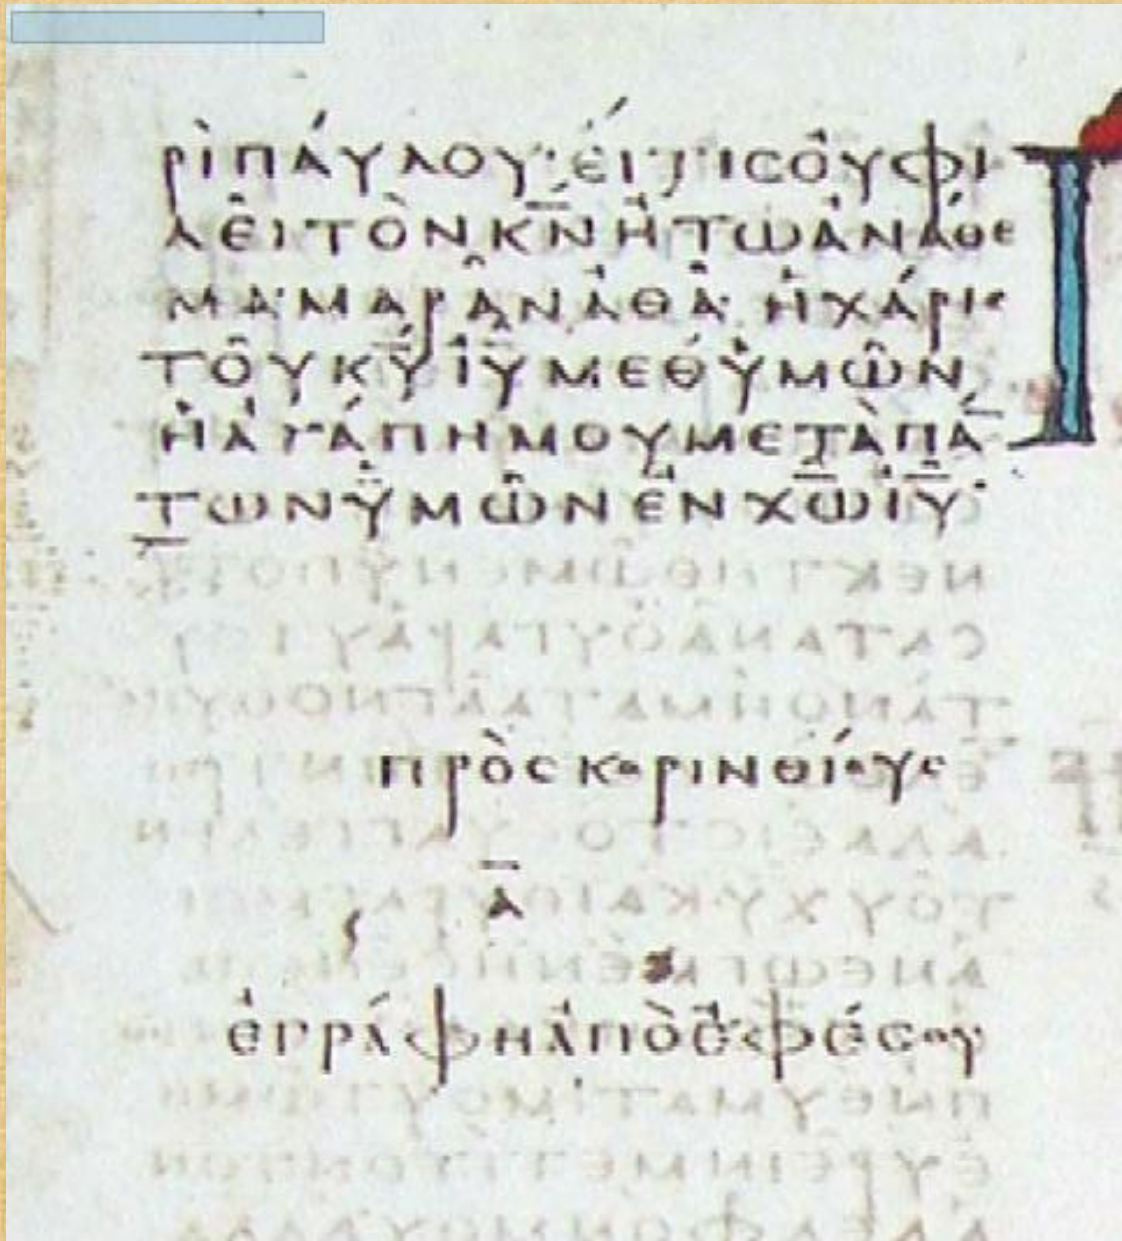 ρὶ παύλου· εἴ τις οὐ φι
λεῖ τὸν κ̅ν̅ ἤτω ἀνάθε
μα· μαρᾶν ἀθά· ἡ χάρις
τοῦ κ̅υ̅ ι̅υ̅ μεθ ὑμῶν
ἡ ἀγάπη μου μετὰ πά̅
των ὑμῶν ἐν χ̅ω̅ ι̅υ̅·
πρὸς κορινθίους
α̅
ἐγράφη ἀπὸ ἐφέσου